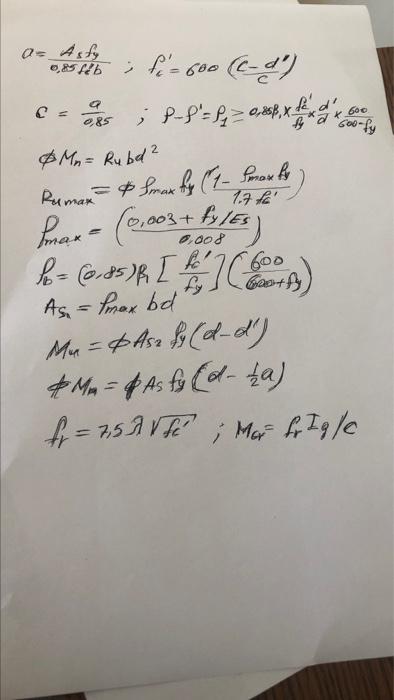 a = As fy / 0,85 fc' b ; f'c = 600 ( c - d' / c )
c = a / 0,85 ; ρ - ρ' = ρ1 ≥ 0,85β1 × fc' / fy × d' / d × 600 / 600-fy
φMn = Ru bd²
Rumax = φ ρmax fy ( 1 - ρmax fy / 1.7 fc' )
ρmax = ( 0,003 + fy/Es / 0.008 )
ρb = (0.85) β1 [ fc' / fy ] ( 600 / 600+fy )
As1 = ρmax bd
Mu = φ As2 fy (d - d')
φMn = φ As fy (d - ½a)
fr = 7,5 λ √fc' ; Mcr = fr Ig/c